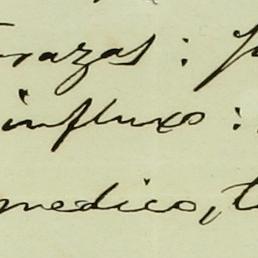 razas:
influxo:
medico, t